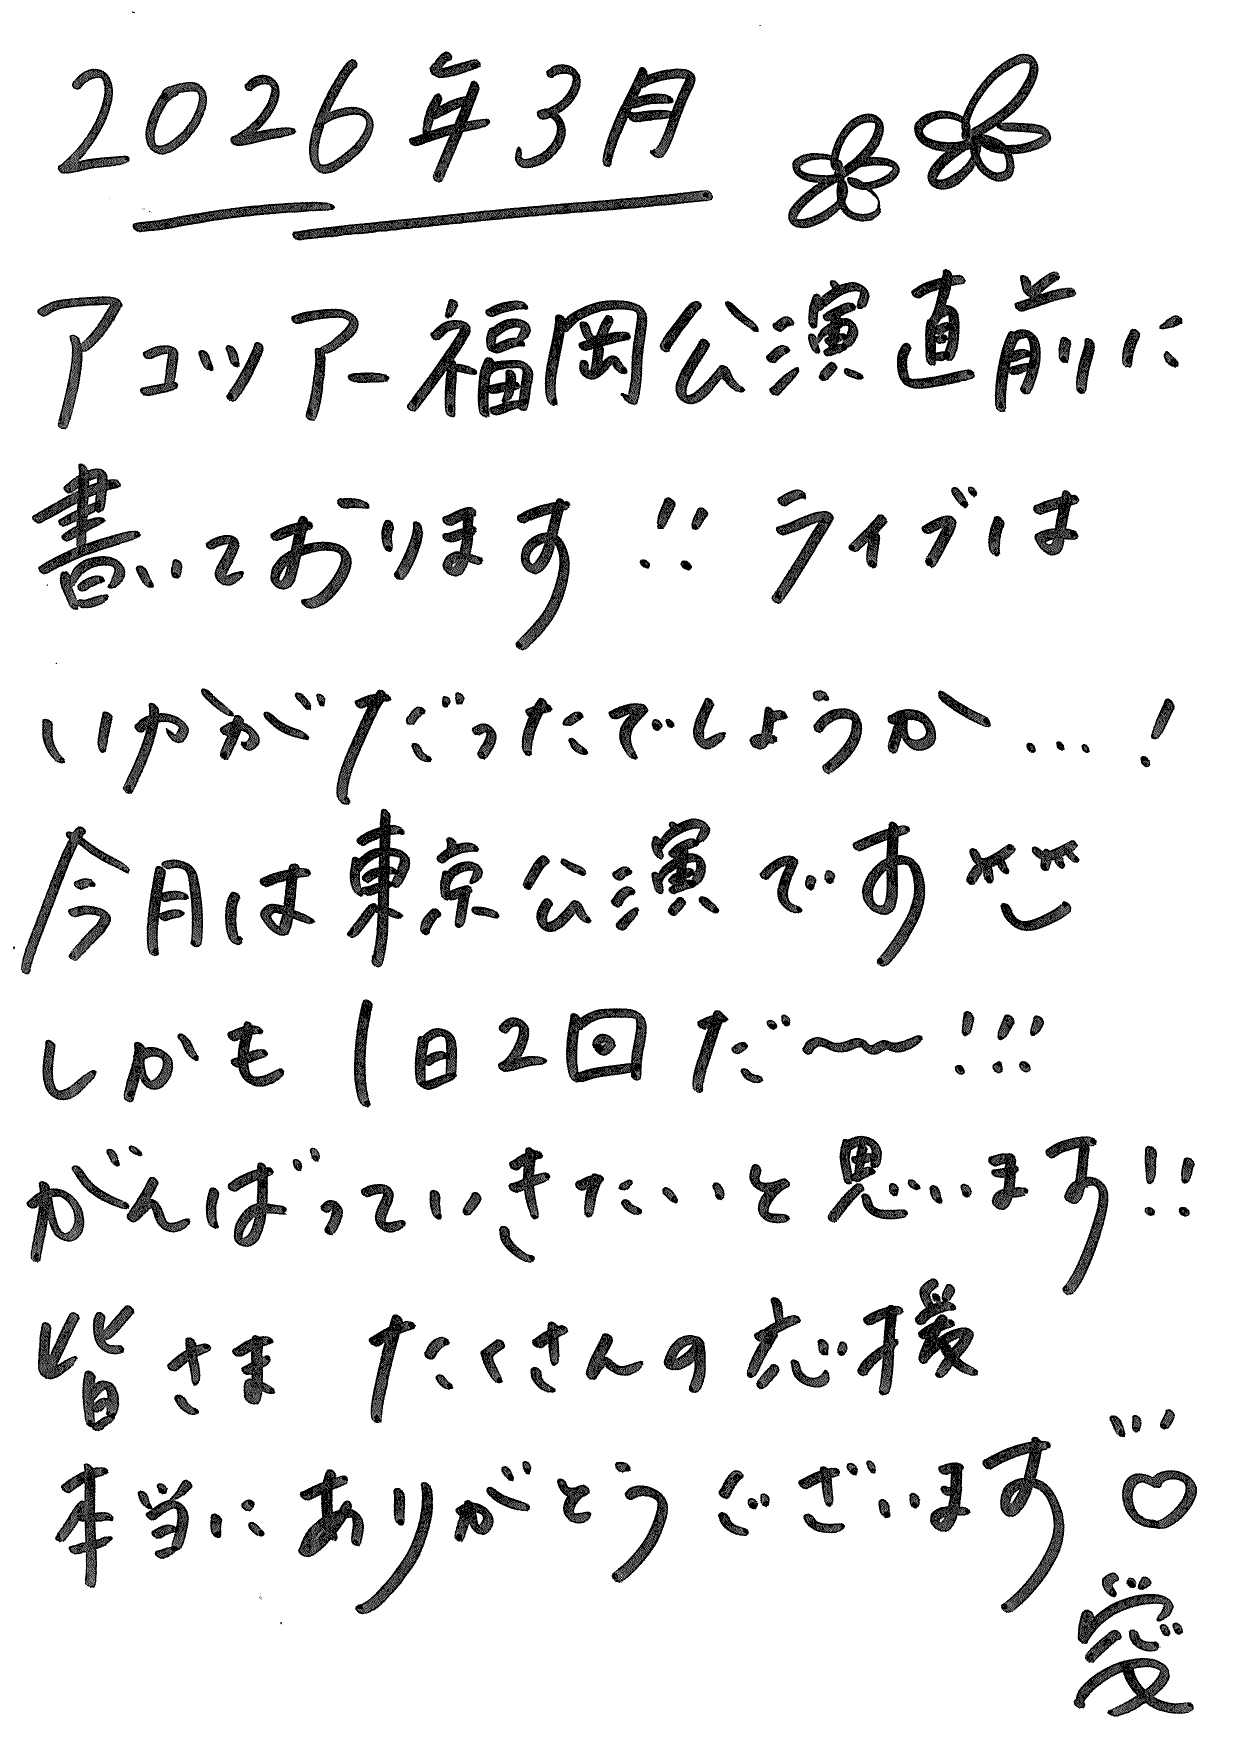 2026年3月
アコツアー福岡公演直前に
書いております!! ライブは
いかがだったでしょうか…!
今月は東京公演です
しかも1日2回だ〜!!!
がんばっていきたいと思います!!
皆さま たくさんの応援
本当にありがとうございます♡
愛